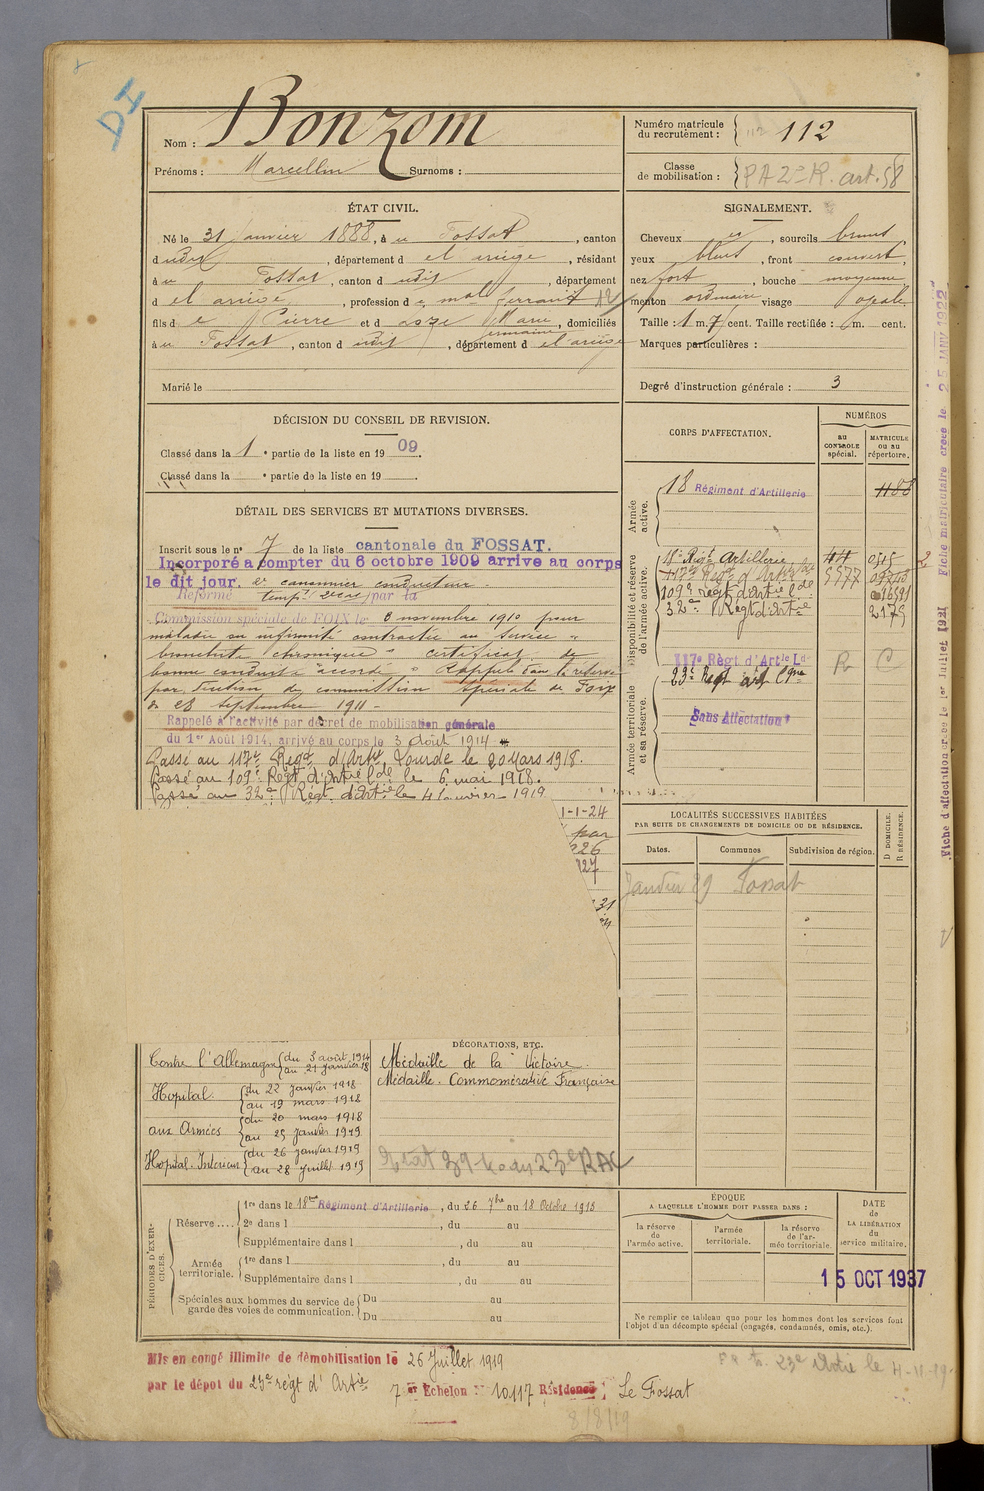 DI
Nom : Bonzom
Prénoms : Marcellin Surnoms :
Numéro matricule du recrutement : 112 112
Classe de mobilisation : art. 58
ÉTAT CIVIL.
Né le 31 janvier 1888, à u Fossat, canton
dudit, département d el ariège, résidant
à u Fossat, canton d udit, département
d el ariège, profession d e mal ferrant
fils d e Pierre et d Marie, domiciliés
à u Fossat, canton d udit, département d el'ariège
Marié le
SIGNALEMENT.
Cheveux, sourcils bruns
yeux bleus, front couvert,
nez fort, bouche moyenne
menton ordinaire visage ovale
Taille : 1 m. 7 cent. Taille rectifiée : 1 m. cent.
Marques particulières :
Degré d'instruction générale : 3
DÉCISION DU CONSEIL DE REVISION.
Classé dans la 1 e partie de la liste en 1909.
Classé dans la e partie de la liste en 19 .
DÉTAIL DES SERVICES ET MUTATIONS DIVERSES.
Inscrit sous le n° 7 de la liste cantonale du FOSSAT.
Incorporé à compter du 6 octobre 1909 arrive au corps
le dit jour. 2e canonnier conducteur
Réformé par la
Commission spéciale de FOIX le 8 novembre 1910 pour
maladie ou infirmité contractée au service
bronchite chronique certificat de
bonne conduite "accordé" Rappelé dans la réserve
par décision de commission spéciale de Foix
du 28 septembre 1911 -
Rappelé à l'activité par décret de mobilisation générale
du 1er Août 1914, arrivé au corps le 3 Août 1914
Passé au 117e Régt d'Artie Lourde le 20 Mars 1918.
Passé au 109e Régt d'Artie Lde le 6 mai 1918.
Passé au 32e Régt d'Artie le 4 Janvier 1919
1-1-24
par
926
927
31
CORPS D'AFFECTATION.
NUMÉROS
au CONTROLE spécial.
MATRICULE ou au répertoire.
Armée active.
18 Régiment d'Artillerie 1188
Disponibilité et réserve de l'armée active.
18e Régt Artillerie 44 0515
117e Régt d'Artie Lde 5577
109e Régt d'Artie Lde 16591
32e Régt d'Artie 2175
Armée territoriale et sa réserve.
117e Règt d'Artie Lde
23e Regt art Cgne
Sans Affectation
LOCALITÉS SUCCESSIVES HABITÉES
PAR SUITE DE CHANGEMENTS DE DOMICILE OU DE RÉSIDENCE.
Dates.
Communes
Subdivision de région.
D DOMICILE.
R RÉSIDENCE.
Janvier 29 Fossat
Contre l'Allemagne du 3 août 1914
au 21 janvier 18
Hopital. du 22 janvier 1918
au 19 mars 1918
aux Armées du 20 mars 1918
au 25 janvier 1919
Hopital. Intérieur du 26 janvier 1919
au 28 Juillet 1919
DÉCORATIONS, ETC.
Médaille de la Victoire
Médaille. Commémorative Française
23e RAC
PÉRIODES D'EXERCICES.
Réserve....
1re dans le 18me Régiment d'Artillerie, du 26 7bre au 18 Octobre 1913
2e dans l , du au
Supplémentaire dans l , du au
Armée territoriale.
1re dans l , du au
Supplémentaire dans l , du au
Spéciales aux hommes du service de garde des voies de communication.
Du au
Du au
ÉPOQUE
A LAQUELLE L'HOMME DOIT PASSER DANS :
la réserve de l'armée active.
l'armée territoriale.
la réserve de l'armée territoriale.
DATE de LA LIBÉRATION du service militaire.
15 OCT 1937
Ne remplir ce tableau que pour les hommes dont les services font
l'objet d'un décompte spécial (engagés, condamnés, omis, etc.).
Mis en congé illimité de démobilisation le 26 Juillet 1919
par le dépôt du 23e régt d'Artie 7 Echelon N° 10117 Résidence : Le Fossat
8/8/19
23e Artie le 4-11-19
Fiche d'affectation créée le 1er Juillet 1921 Fiche matriculaire créée le 25 JANV 1922